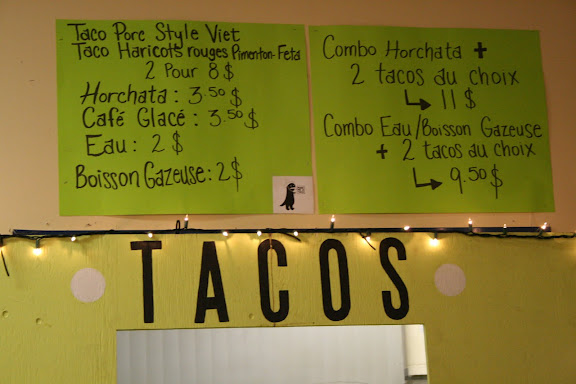 Taco Porc Style Viet
Taco Haricots rouges Pimenton-Feta
2 Pour 8$
Horchata: 3.50$
Café Glacé: 3.50$
Eau: 2$
Boisson Gazeuse: 2$
Combo Horchata +
2 tacos au choix
↳ 11$
Combo Eau/Boisson Gazeuse
+ 2 tacos au choix
↳ 9.50$
TACOS